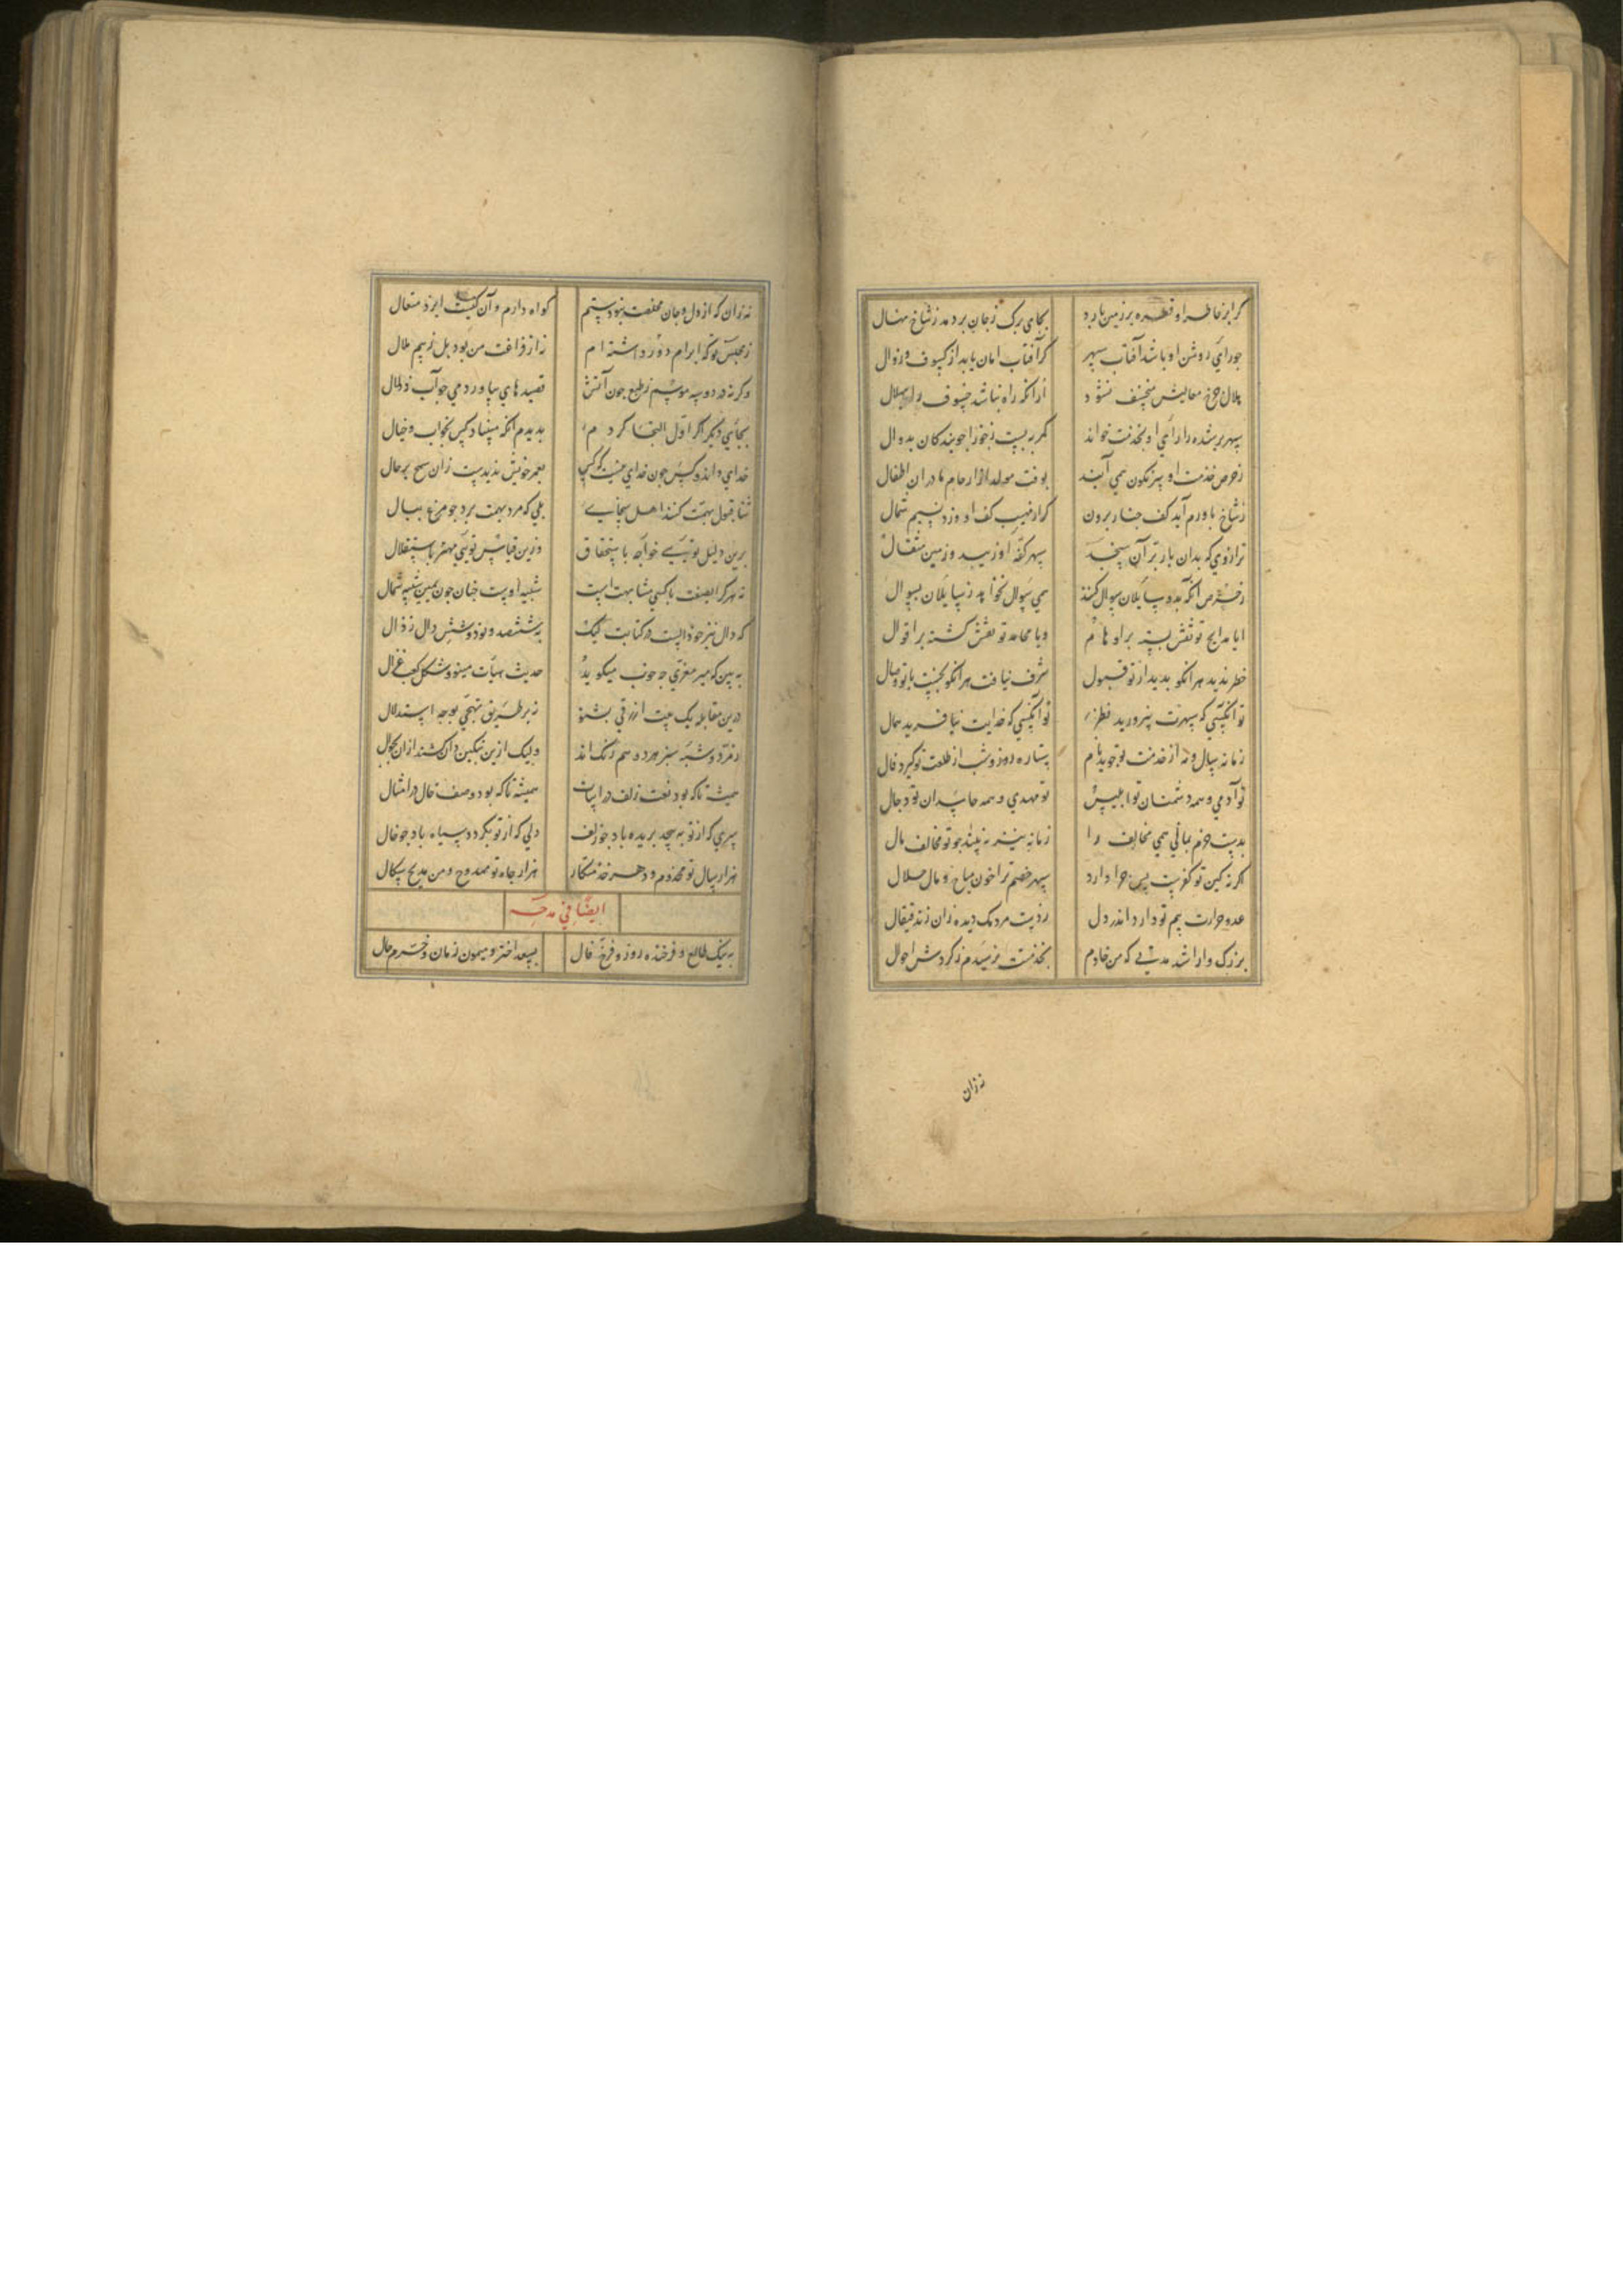 گر ابر خاطر او قطره بر زمین بارد بجای برگ زجان بردمد ز شاخ نهال
جو رای روشن او باشد آفتاب سپهر گر آفتاب امان یابد از کسوف و زوال
هلال جرخ معالیش منخسف نشود ازانکه راه نباشد خسوف را بهلال
سپهر برشده را رای او بخدمت خواند کمر ببست ز جوزا جو بندکان بدوال
ز حرص خدمت او سرنکون همی آیند بوقت مولد از ارحام مادران اطفال
ز شاخ باورم آید کف جنار برون کر از نهیب کف او وزد نسیم شمال
ترازوی که بدان بار برّ آن سنجند سپهر کفّه او زیبد و زمین مثقال
ز حرص آنکه بدو سایلان سوال کنند همی سوال نخواهد ز سایلان بسوال
ایا مدایح تو نقش بسته بر اوهام ویا محامد تو نقش کشته بر اقوال
خطر ندید هر انکو بدید از تو قبول شرف نیافت هر انکو بجست با تو وصال
تو آنکسی که سپهرت نپرورید نظیر تو آنکسی که خدایت نیافرید همال
زمانه سال و مه از خدمت تو جوید نام ستاره روز و شب از طلعت تو کیرد فال
تو آدمی و همه دشمنان تو ابلیس تو مهدی و همه حاسدان تو دجال
بدست حزم بمالی همی مخالف را زمانه نیز نه بیند جو تو مخالف مال
اکر نه کین تو کفریست پس جرا دارد سپهر خصم ترا خون مباح و مال حلال
عدو حرارت بیم تو دارد اندر دل ردیست مردمک دیده زان زند قیفال
بزرگ وارا شد مدتی که من خادم بخدمتت نرسیدم ز کردش احوال
نه زان
نه زان که از دل و جان مخلصت نبودستم کواه دارم و آن کیست ایزد متعال
ز مجلس تو که ابرام دور داشته ام نه از فراغت من بود بل ز بیم ملال
وکرنه در دو سه موسم ز طبع جون آتش قصیدهای بیاوردمی جو آب زلال
بجای دیکر اکر اول التجا کردم بدیدم آنکه مبیناد کس بخواب و خیال
خدای داند و کس جون خدای نیست که کس بعمر خویش ندیدست زان سمج تر حال
ثنا قبول بهمّت کنند اهل سخای بلی که مرد بهمت پرد جو مرغ ببال
برین دلیل توئی خواجه باستحقاق وزین قیاس توئی مهتر باستقلال
نه هر کرا بصفت با کسی مشابهت است شبیه اوست جنان جون یمین شبیه شمال
که دال نیز جو ذالست در کتابت لیک بششصد و نود و شش دال ز ذال
به بین که میر معزی جه خوب میکوید حدیث هیأت بینو و شکل کعب غزال
درین مقابله یک بیت ازرقی بشنو نه بر طریق تهجّی بوجه استدلال
زمرّد و شبه سبز هر دو هم رنک اند ولیک ازین نکین دان کنند ازان بجوال
همیشه تا که بود نعت زلف در ابیات همیشه تا که بود وصف خال در امثال
سری که از تو به پیچد بریده باد جو زلف دلی که از تو بکردد سیاه باد جو خال
هزار سال تو مخدوم و دهر خدمتکار هزار جاه تو ممدوح و من مدیح سکال
ایضًا فی مدحه
به نیک طالع و فرخنده روز و فرخ فال بسعد اختر و میمون زمان و خرم حال